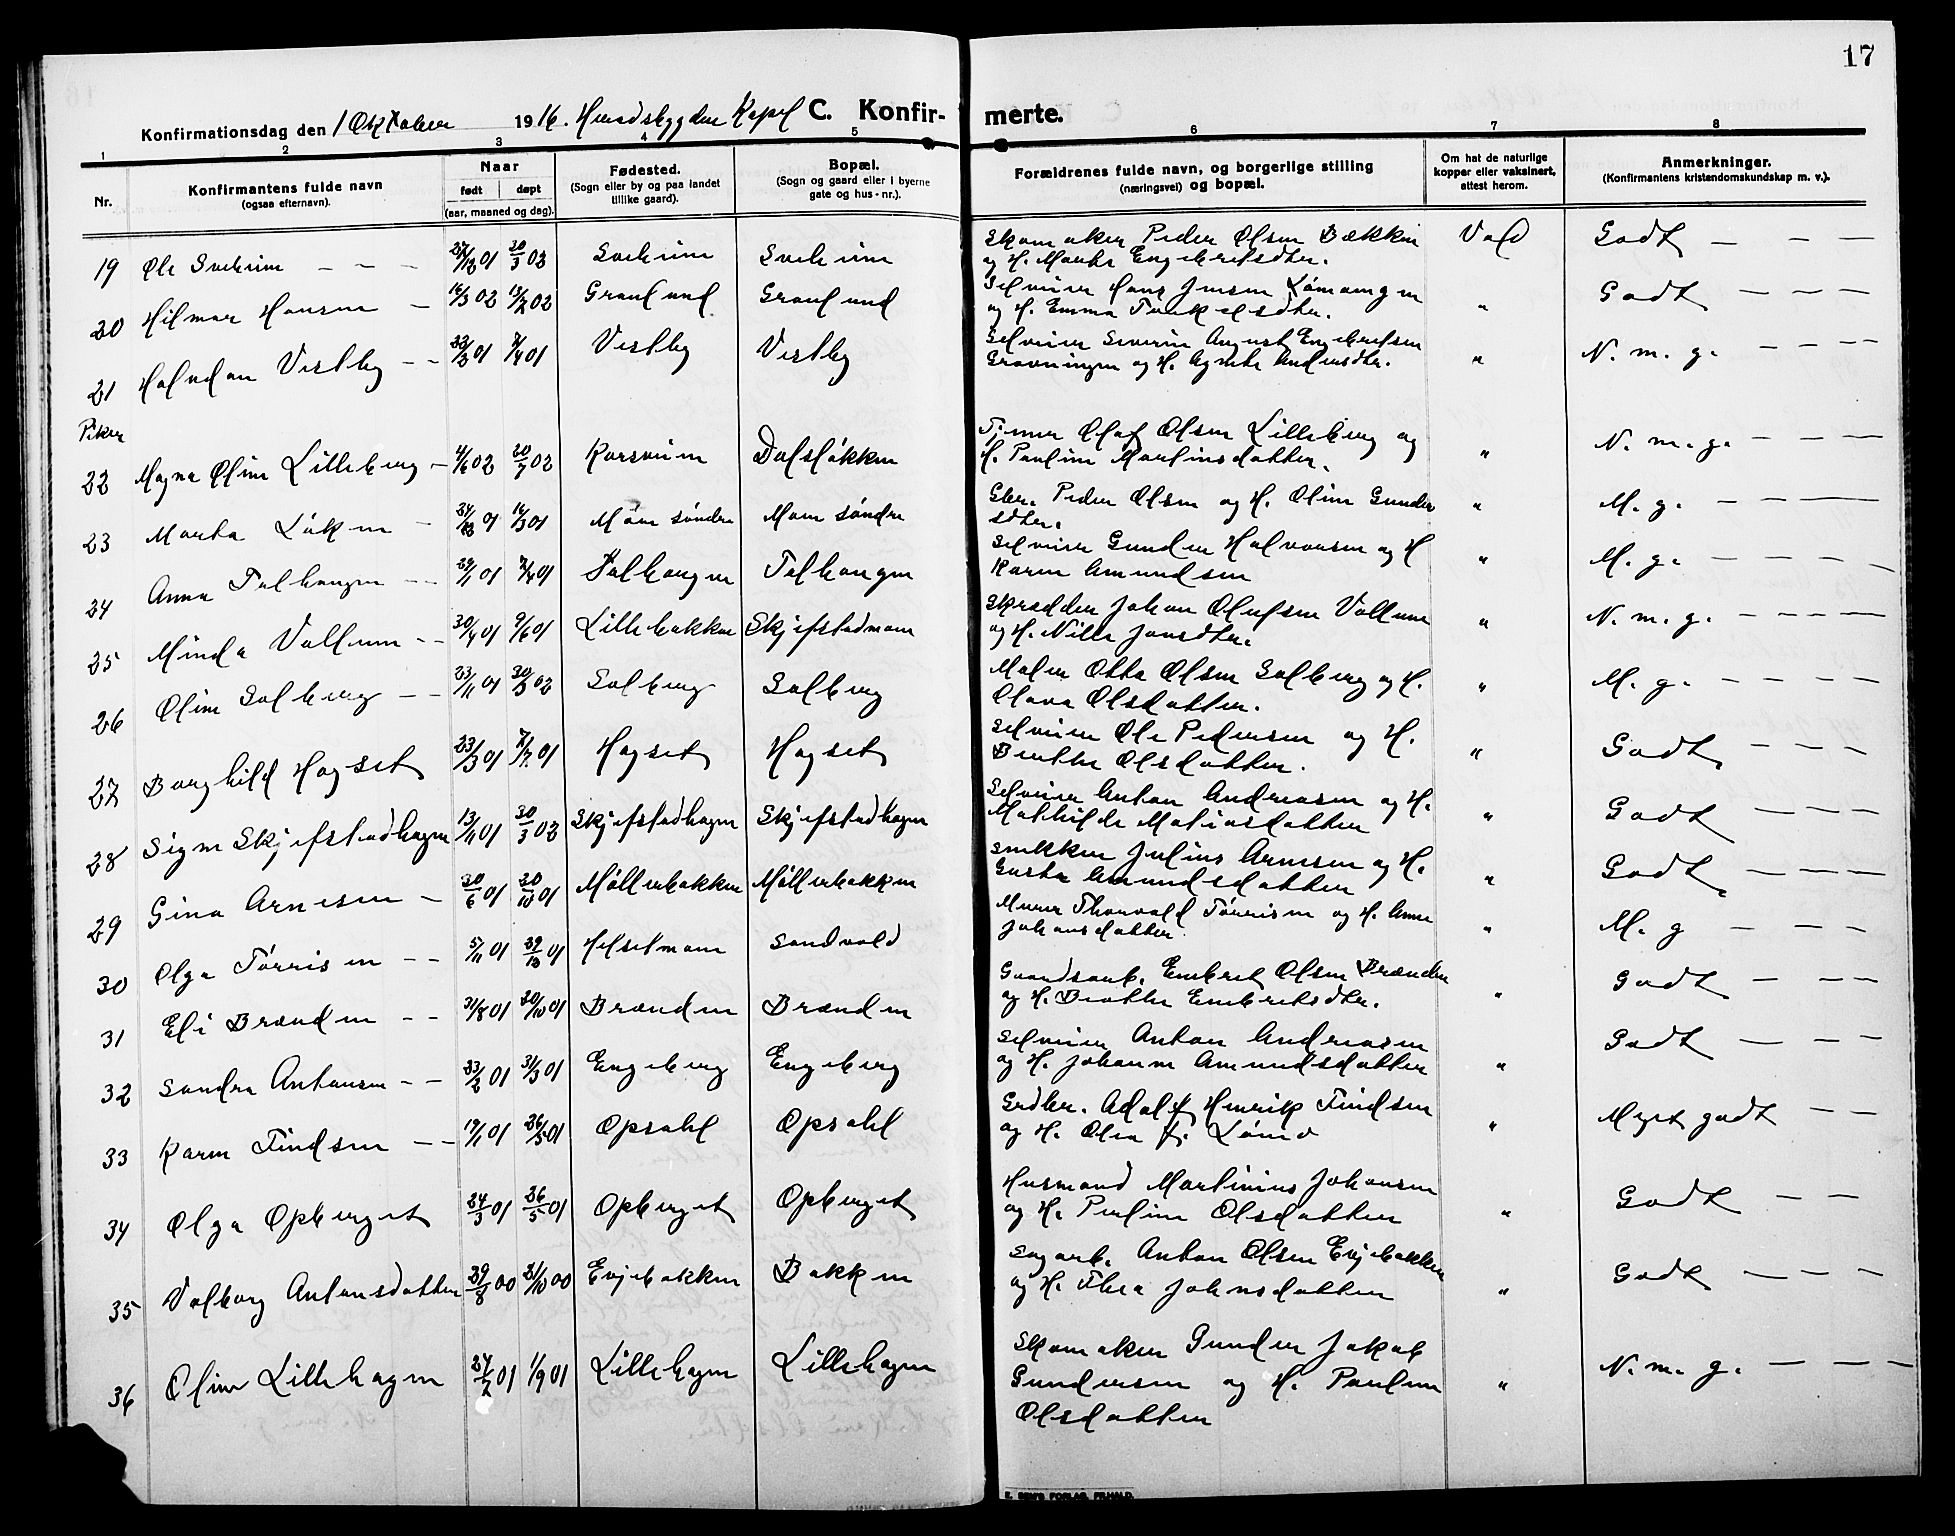 17
Konfirmationsdag den 1 Oktober 1916. Hurdsbygden Kapel C. Konfir- merte.
1 2 3 4 5 6 7 8
Nr. Konfirmantens fulde navn (ogsaa efternavn). Naar født døpt (aar, maaned og dag). Fødested. (Sogn eller by og paa landet tillike gaard). Bopæl. (Sogn og gaard eller i byerne gate og hus-nr.). Forældrenes fulde navn, og borgerlige stilling (næringsvei) og bopæl. Om hat de naturlige kopper eller vaksinert, attest herom. Anmerkninger. (Konfirmantens kristendomskundskap m. v.).
19 Ole Sveheim — — — 01 30/3 02 Sveheim Sveheim Skomaker Peder Olsen Bækken Vad Godt — — —
og H. Marthe Engebretsdtr.
20 Hilmar Hansen — 16/3 02 02 Granlund Granlund Selveier Hans Jensen
og H. Emma Torkelsdtr. " Godt — — —
21 Halvdan Vestby — — 01 01 Vestby Vestby Selveier Severin August Engebretsen
Gravningen og H. Agnethe Andersdtr. " N. m. g. — — — —
Piker
22 Magna Oline Lilleberg — 02 20/7 02 Korsveien Dalsløkken Tømmer Olaf Olsen Lilleberg og
H. Pauline Martinsdatter. " N. m. g. — — — —
23 Marta Løken — 01 01 Mom søndre Mom søndre Gbr. Peder Olsen og H. Oline Gunder
sdtr. " M. g. — — — —
24 Anna Falhaugen — — 01 01 Falhaugen Falhaugen Selveier Gunder Halvorsen og H
Karen Amundsen " M. g. — — — —
25 Minda Vollum — — 30/4 01 9/6 01 Lillebakken Skjefstadmoen Skrædder Johan Olufsen Vollum
og H. Nille Jonsdtr. " N. m. g. — — — —
26 Oline Solberg — — 23/11 01 30/3 02 Solberg Solberg Maler Otto Olsen Solberg og H.
Olava Olsdatter. " M. g. — — — —
27 Borghild Hogset 23/3 01 01 Hogset Hogset Selveier Ole Pedersen og H.
Berthe Olsdatter. " Godt — — —
28 Signe Skjefstadhagen 13/11 01 30/3 02 Skjefstadhagen Skjefstadhagen Selveier Anton Andreasen og H.
Mathilde Matiasdatter " Godt — — —
29 Gina Arnesen — 30/6 01 20/10 01 Møllerbakken Møllerbakken Snekker Julius Arnesen og H.
Gusta Amundsdatter " Godt — — —
30 Olga Tørrisen — — 5/11 01 29/12 01 Helsetmoen Sandvold Murer Thorvald Tørrisen og H. Anne
Johansdatter. " M. g — — —
31 Eli Brænden — — 31/8 01 20/10 01 Brænden Brænden Gaardsarb. Embret Olsen Brænden
og H. Berthe Embretsdtr. " Godt — — —
32 Sandra Antonsen — — 23/2 01 31/3 01 Engeberg Engeberg Selveier Anton Andreasen
og H. Johanne Amundsdatter " Godt — — —
33 Karen Findsen — — 19/1 01 26/5 01 Opsahl Opsahl Grdbr. Adolf Henrik Findsen
og H. Olea f. " Meget godt — —
34 Olga Opberget 24/3 01 26/5 01 Opberget Opberget Husmand Martinius Johansen
og H. Pauline Olsdatter " Godt — —
35 Valborg Antonsdatter 29/8 00 21/10 00 Evjebakken Bakken Sagarb. Anton Olsen Evjebakken
og H. Thea Johnsdatter " Godt — — —
36 Oline Lillehagen 01 1/9 01 Lillehagen Lillehagen Skomaker Gunder Jakob
Gundersen og H. Pauline " N. m. g. — — —
Olsdatter